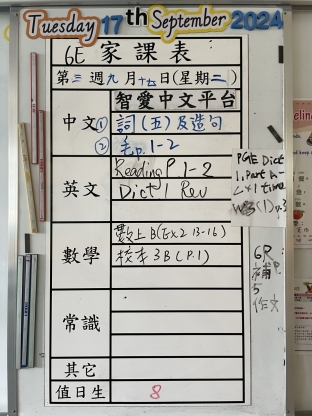 Tuesday 17th September 2024
6E 家課表
第三週九月十七日(星期二)
智愛中文平台
中文 ① 詞(五)及造句
② 毛P.1-2
英文 Reading P 1-2
Dict 1 Rev
數學 數上B(Ex2 13-16)
校本3B(P.1)
常識
其它
值日生 8
PG1E Dict
1, Part A-
1 time
WB(1)
6R
補
5
作文